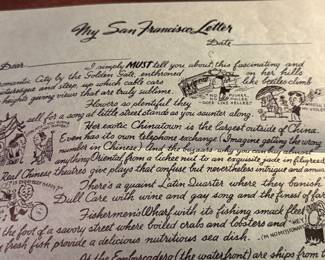 My San Francisco Letter
Date
Dear
I simply MUST tell you about this fascinating and
romantic City by the Golden Gate, enthroned on her hills
picturesque and steep, up which cable cars like beetles climb
heights giving views that are truly sublime.
Flowers so plentiful they
sell for a song at little street stands as you saunter along.
Her exotic Chinatown is the largest outside of China.
Even has its own telephone exchange (Imagine getting the wrong
number in Chinese) And the bazaars you can buy
anything Oriental from a lichee nut to an exquisite jade in filigree
Real Chinese theatres give plays that confuse but nevertheless intrigue and amuse
There's a quaint Latin Quarter where they banish
Dull Care with wine and gay song and the finest of
Fishermen's Wharf with its fishing smack fleet
the foot of a savory street where boiled crabs and lobsters and
fresh fish provide a delicious nutritious sea dish.
"I'M NO
At the Embarcadero (the waterfront) are ships from